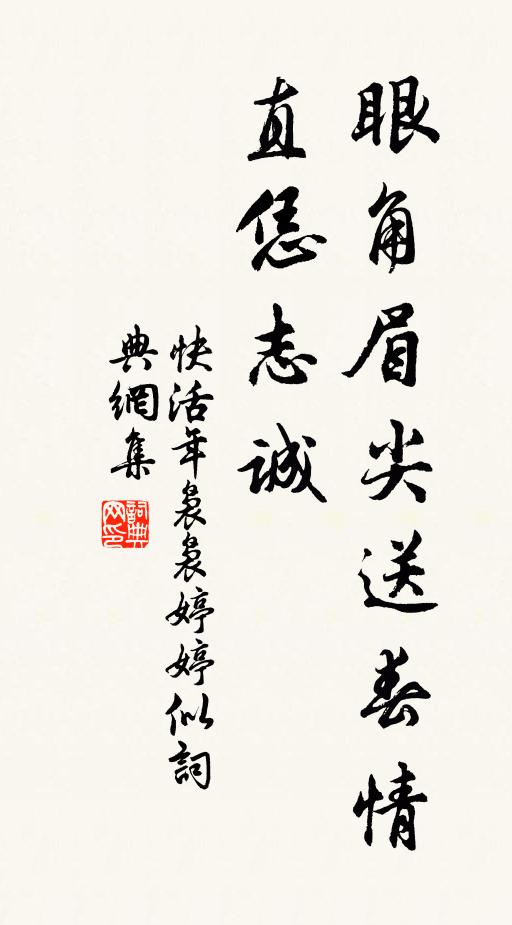 眼角眉尖送春情
直恁志誠
快活年裊裊婷婷似詞
典網集
詞典
网印